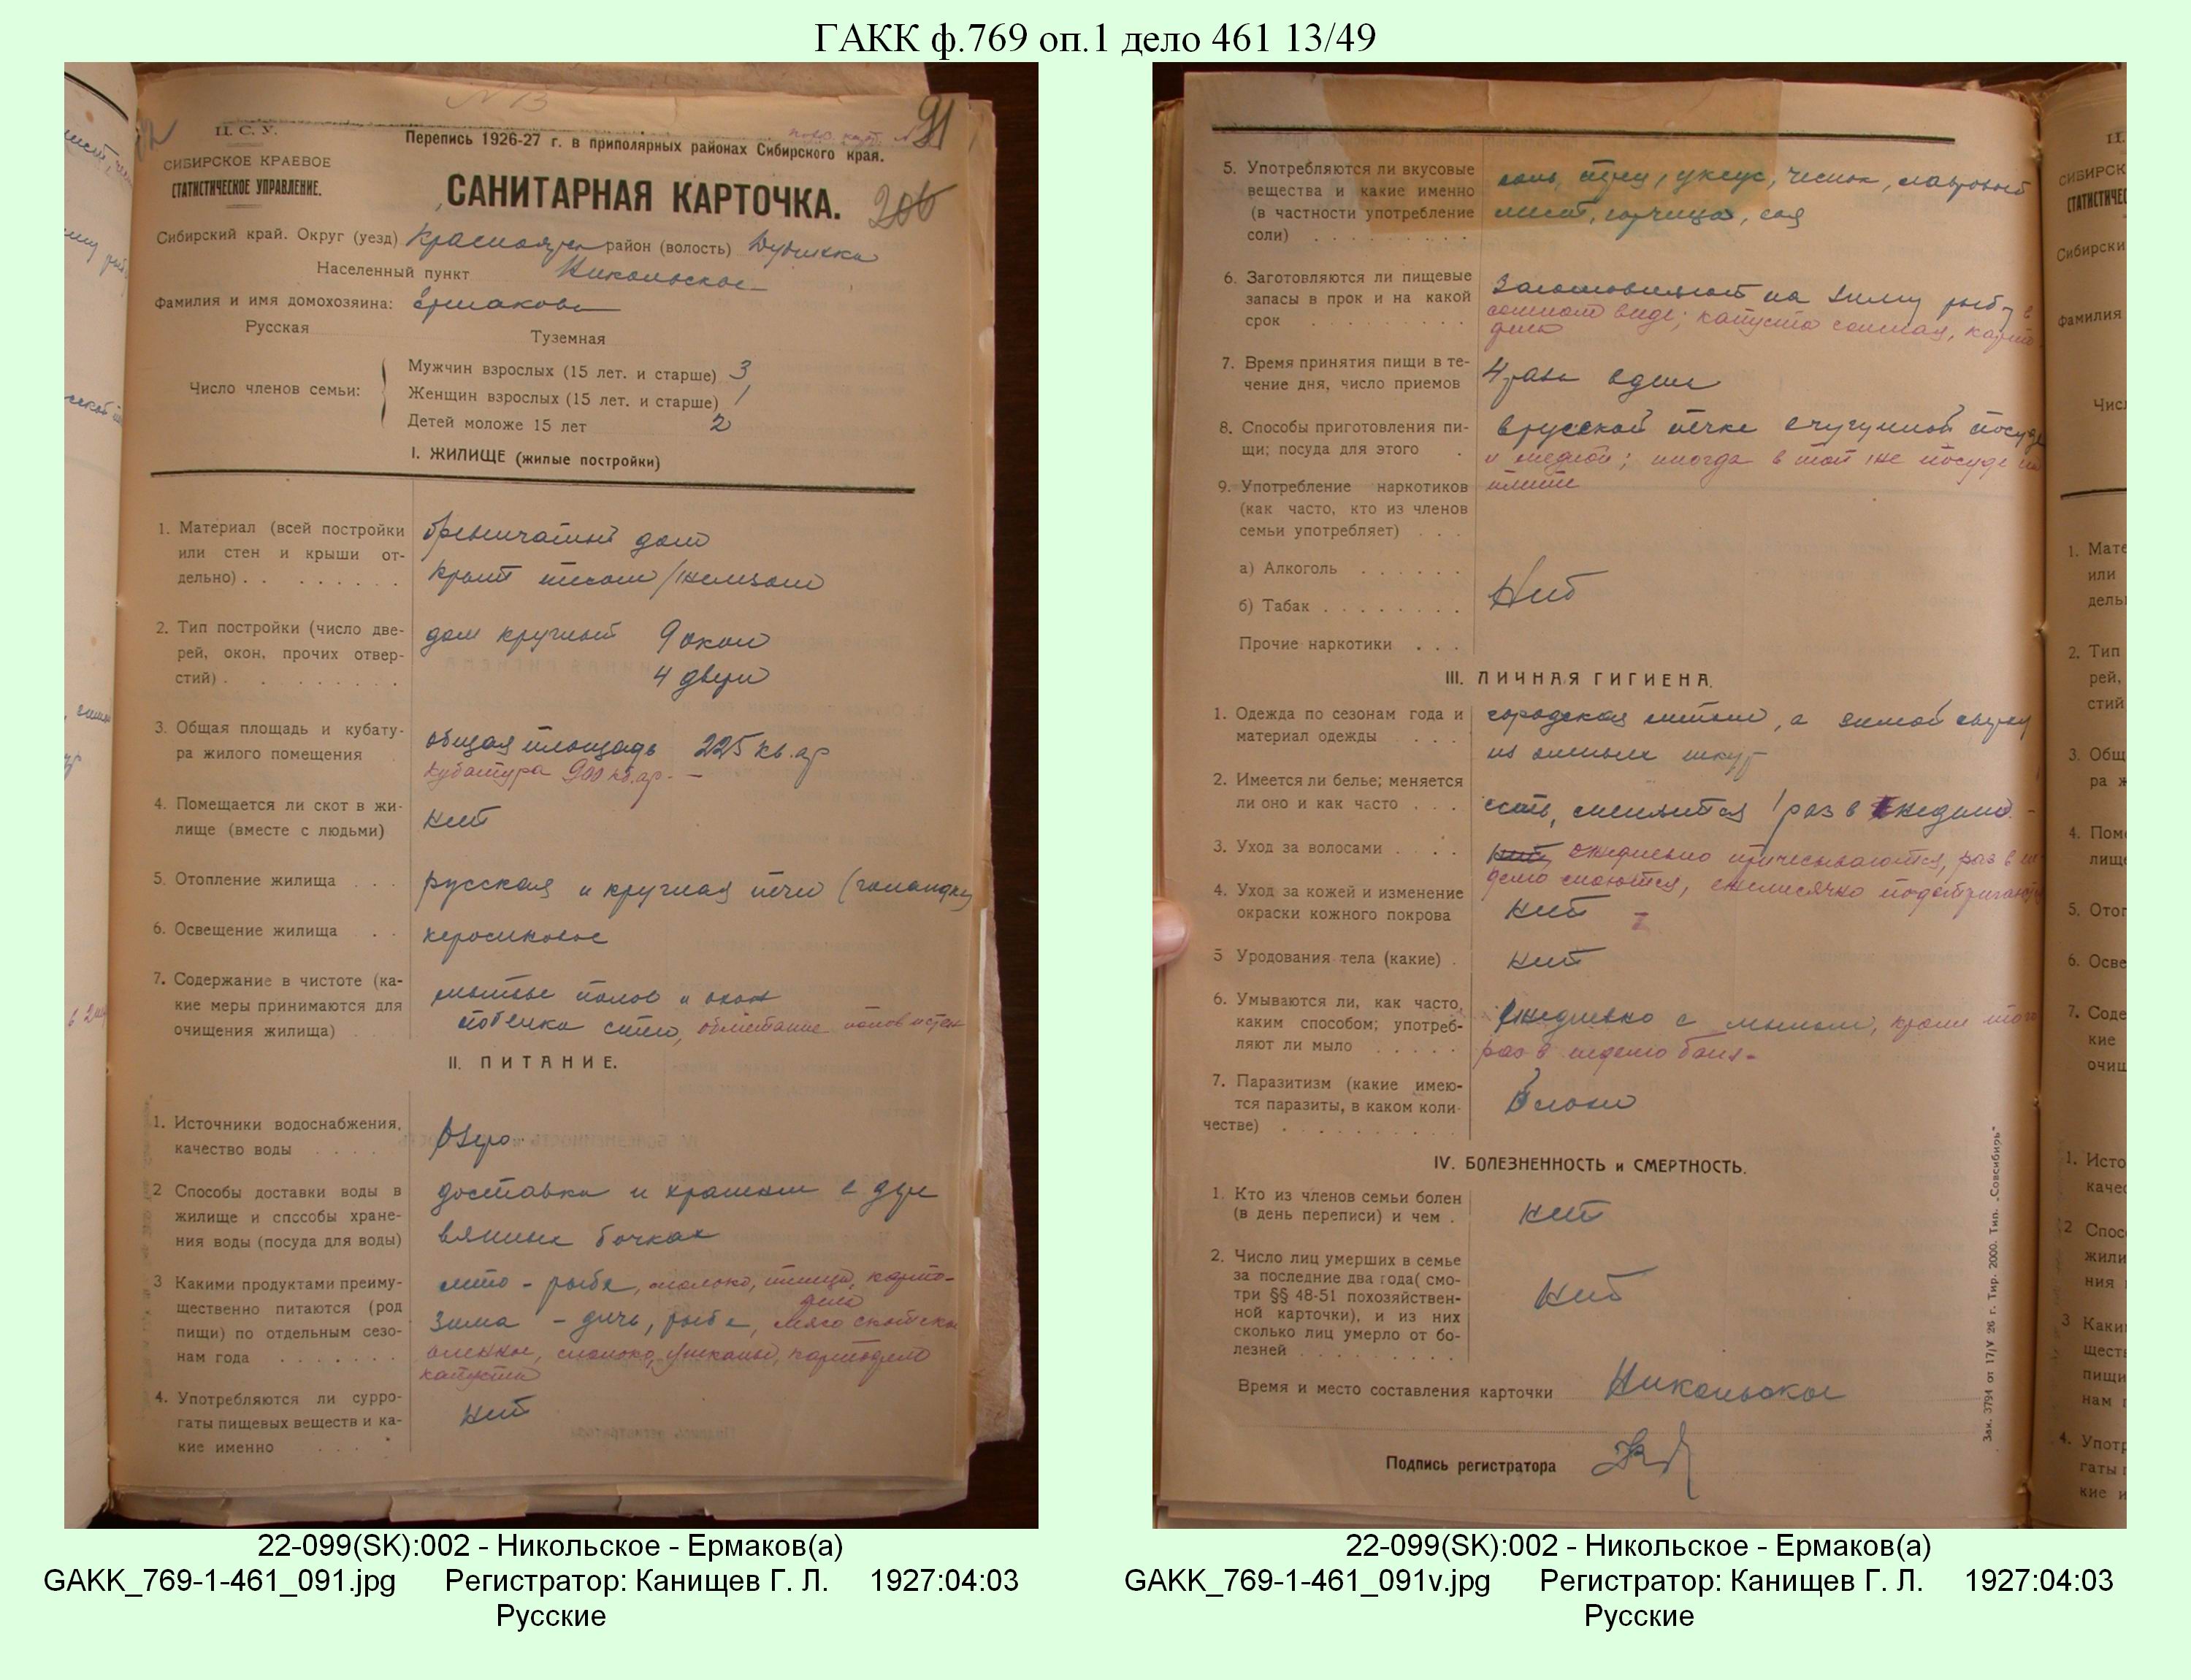 ГАКК ф.769 оп.1 дело 461 13/49
N 13
91
Ц. С. У.
Перепись 1926-27 г. в приполярных районах Сибирского края.
СИБИРСКОЕ КРАЕВОЕ
СТАТИСТИЧЕСКОЕ УПРАВЛЕНИЕ.
САНИТАРНАЯ КАРТОЧКА.
206
Сибирский край. Округ (уезд) Краснояр район (волость) Дудинка
Населенный пункт Никольское
Фамилия и имя домохозяина: Ермакова
Русская
Туземная
Число членов семьи:
Мужчин взрослых (15 лет. и старше) 3
Женщин взрослых (15 лет. и старше) 1
Детей моложе 15 лет 2
I. ЖИЛИЩЕ (жилые постройки)
1. Материал (всей постройки
или стен и крыши от-
дельно) . . . . . . . .
бревенчатый дом
крыт тесом /
2. Тип постройки (число две-
рей, окон, прочих отвер-
стий) . . . . . . . . .
дом круглый 9 окон
4 двери
3. Общая площадь и кубату-
ра жилого помещения
общая площадь 225 кв. ар
кубатура 900 кб. ар. —
4. Помещается ли скот в жи-
лище (вместе с людьми)
нет
5. Отопление жилища . . .
русская и круглая печи (голандка
6. Освещение жилища . . .
керосиновое
7. Содержание в чистоте (ка-
кие меры принимаются для
очищения жилища) .
мытье полов и окон
побелка стен, обметание полов и стен
II. ПИТАНИЕ.
1. Источники водоснабжения,
качество воды . . . .
Озеро
2 Способы доставки воды в
жилище и способы хране-
ния воды (посуда для воды)
доставка и хранение в дере
вянных бочках
3 Какими продуктами преиму-
щественно питаются (род
пищи) по отдельным сезо-
нам года . . . . . . .
лето - рыба, молоко, птица, карто-
фель
Зима - дичь, рыба, мясо скотское
оленное, молоко, ушканы, картофель
капуста
4. Употребляются ли сурро-
гаты пищевых веществ и ка-
кие именно . . . .
нет
22-099(SK):002 - Никольское - Ермаков(а)
GAKK_769-1-461_091.jpg Регистратор: Канищев Г. Л. 1927:04:03
Русские
5. Употребляются ли вкусовые
вещества и какие именно
(в частности употребление
соли) . . . . . . . . .
соль, перец, уксус, чеснок, лавровый
лист, горчица, соя
6. Заготовляются ли пищевые
запасы в прок и на какой
срок . . . . . . . .
Заготовляют на зиму рыбу в
соленом виде; капуста соленая, карто
фель
7. Время принятия пищи в те-
чение дня, число приемов
4 раза едим
8. Способы приготовления пи-
щи; посуда для этого .
в русской печке в чугунной посуде
и медной; иногда в той же посуде на
плите
9. Употребление наркотиков
(как часто, кто из членов
семьи употребляет) . . .
а) Алкоголь . . . . . .
б) Табак . . . . . . . .
Нет
Прочие наркотики . . .
III. ЛИЧНАЯ ГИГИЕНА.
1. Одежда по сезонам года и
материал одежды . . . .
городская летом, а зимой сверху
из оленьих шкур
2. Имеется ли белье; меняется
ли оно и как часто . . .
есть, меняется 1 раз в неделю. -
3. Уход за волосами . . . .
нет ежедневно причесываются, раз в не
делю моются, ежемесячно подстригаются
4. Уход за кожей и изменение
окраски кожного покрова
нет
5 Уродования тела (какие) .
нет
6. Умываются ли, как часто,
каким способом; употреб-
ляют ли мыло . . . . .
Ежедневно с мылом, кроме того
раз в неделю баня.
7. Паразитизм (какие имею-
тся паразиты, в каком коли-
честве) . . . . . . . . . .
Блохи
IV. БОЛЕЗНЕННОСТЬ и СМЕРТНОСТЬ.
1. Кто из членов семьи болен
(в день переписи) и чем .
нет
2. Число лиц умерших в семье
за последние два года( смо-
три §§ 48-51 похозяйствен-
ной карточки), и из них
сколько лиц умерло от бо-
лезней . . . . . . . . .
нет
Время и место составления карточки Никольское
Подпись регистратора
Зак. 3794 от 17/V 26 г. Тир. 2000. Тип. „Совсибирь"
22-099(SK):002 - Никольское - Ермаков(а)
GAKK_769-1-461_091v.jpg Регистратор: Канищев Г. Л. 1927:04:03
Русские